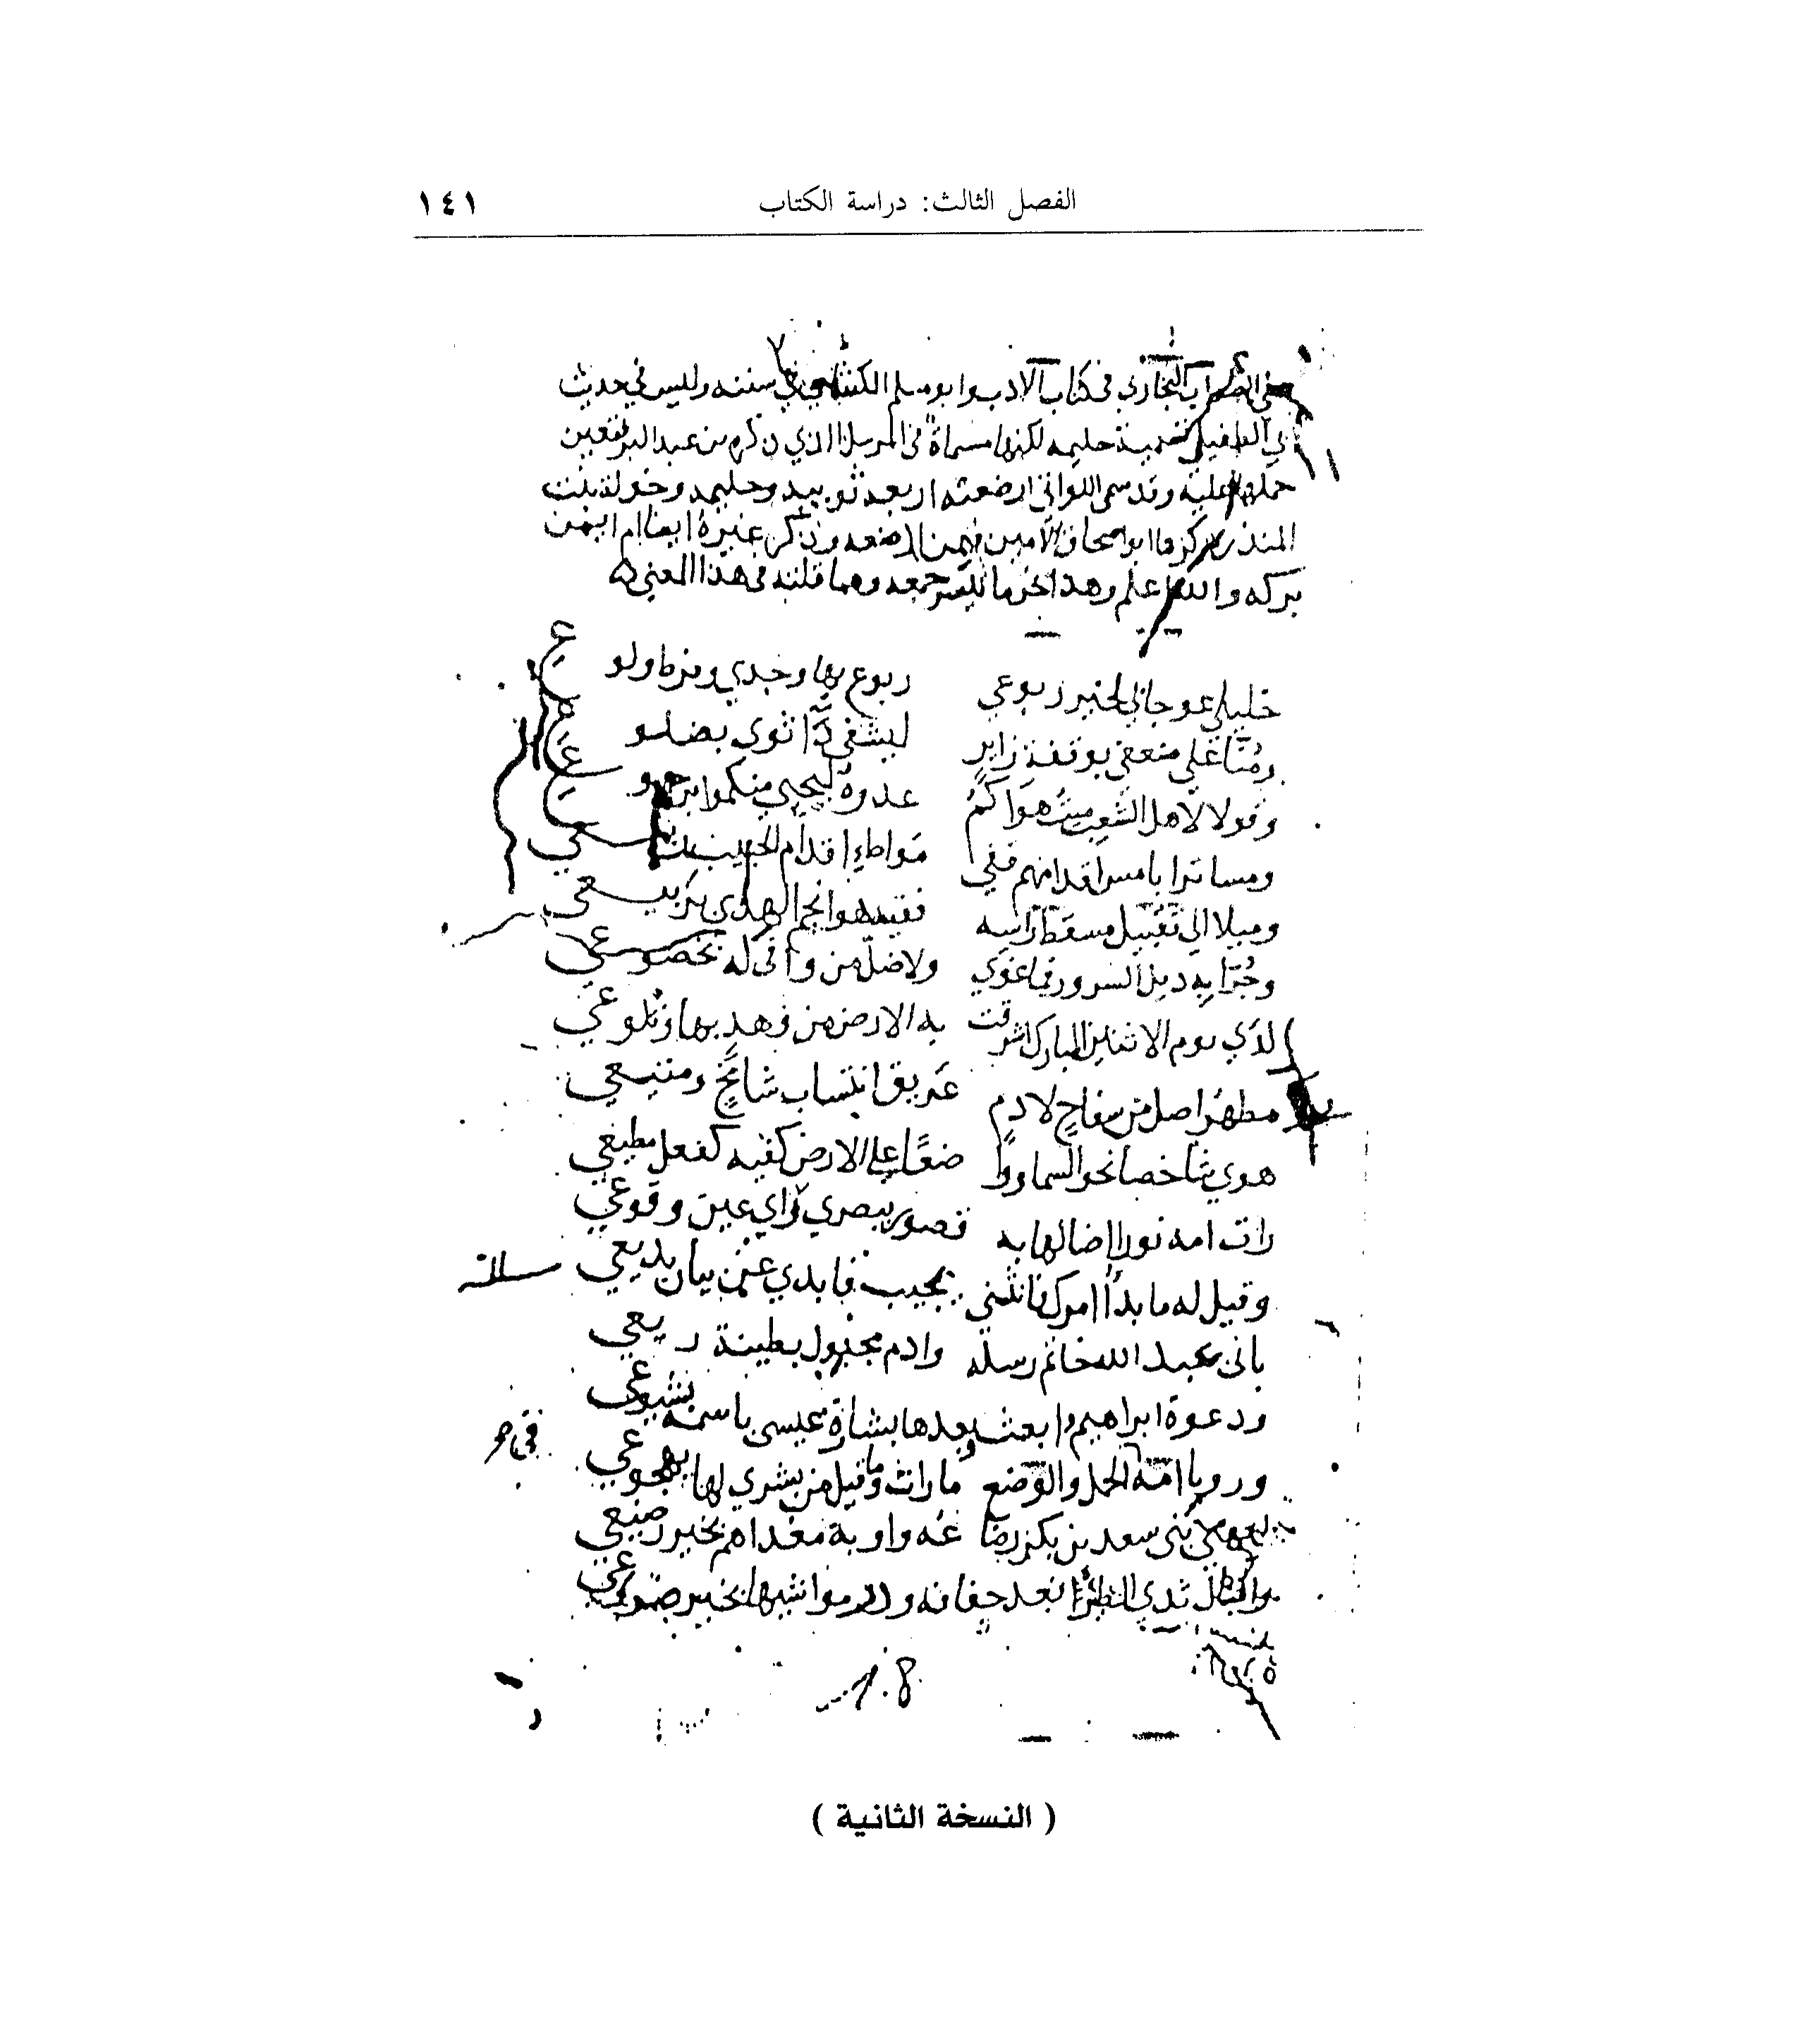 الفصل الثالث: دراسة الكتاب
١٤١
البخاري في كتاب الادب وابو مسلم الكشي في سننه وليس في حديث
ابي الطفيل تسمية حليمه لكنها مسماة في المرسل الذي ذكره بن عبد البر فتعين
حملها عليه وقد سمى اللواتي ارضعنه اربعه ثويبه وحليمه وخولة بنت
المنذر ذكرها ابو اسحاق الامين فيمن ارضعه وذكر غيره ايضا ام ايمن
بركه والله اعلم وهذا اخر ما تيسر جمعه ومما قلته في هذا المعنى
خليلي عوجا بي لخير ربوعي ربوع بها وجدي وفرط ولوعي
ومنا على ضعفي بوقفة زاير ليشفى ثوى بضلوعي
وقولا لاهل الشعب ميت هواكم عدوه ليحيى منكموا برجوع
ومسا ترابا مس اقدامهم ففي مواطئ اقدام الحبيب
وميلا الى تقبيل مسقط راسه ففيه هوا نجم الهدى بربيعي
وجرا به ذيل السرور فما غوي ولا ضل من وافى له بخضوعي
لدى يوم الاثنين المبارك اشرقت به الارض من وهد بها وتلوعي
مطهر اصل من سفاح لادم عريق انتساب شامخ ومنيعي
هوى شاخصا نحو السما وواضعا على الارض كفيه كفعل مطيعي
رات امه نورا اضا لها به قصور ببصرى راي عين وقوعي
وقيل له ما بدأ امرك فانثنى يجيب فابدى عن بيان بديعي
باني عبد الله خاتم رسله وادم مجبول بطينة ريعي
ودعوة ابراهيم وابعث وبعدها بشارة عيسى باسمه بشيوعي
ورويا امه الحمل والوضع ما رات وما قيل من بشرى لها بهجوعي
بني سعد بن بكر رضاعه واوبة مغداهم بخير صنيعي
ثدي الظئر بعد جفافه ودر مواشيها بخير ضروعي
( النسخة الثانية )